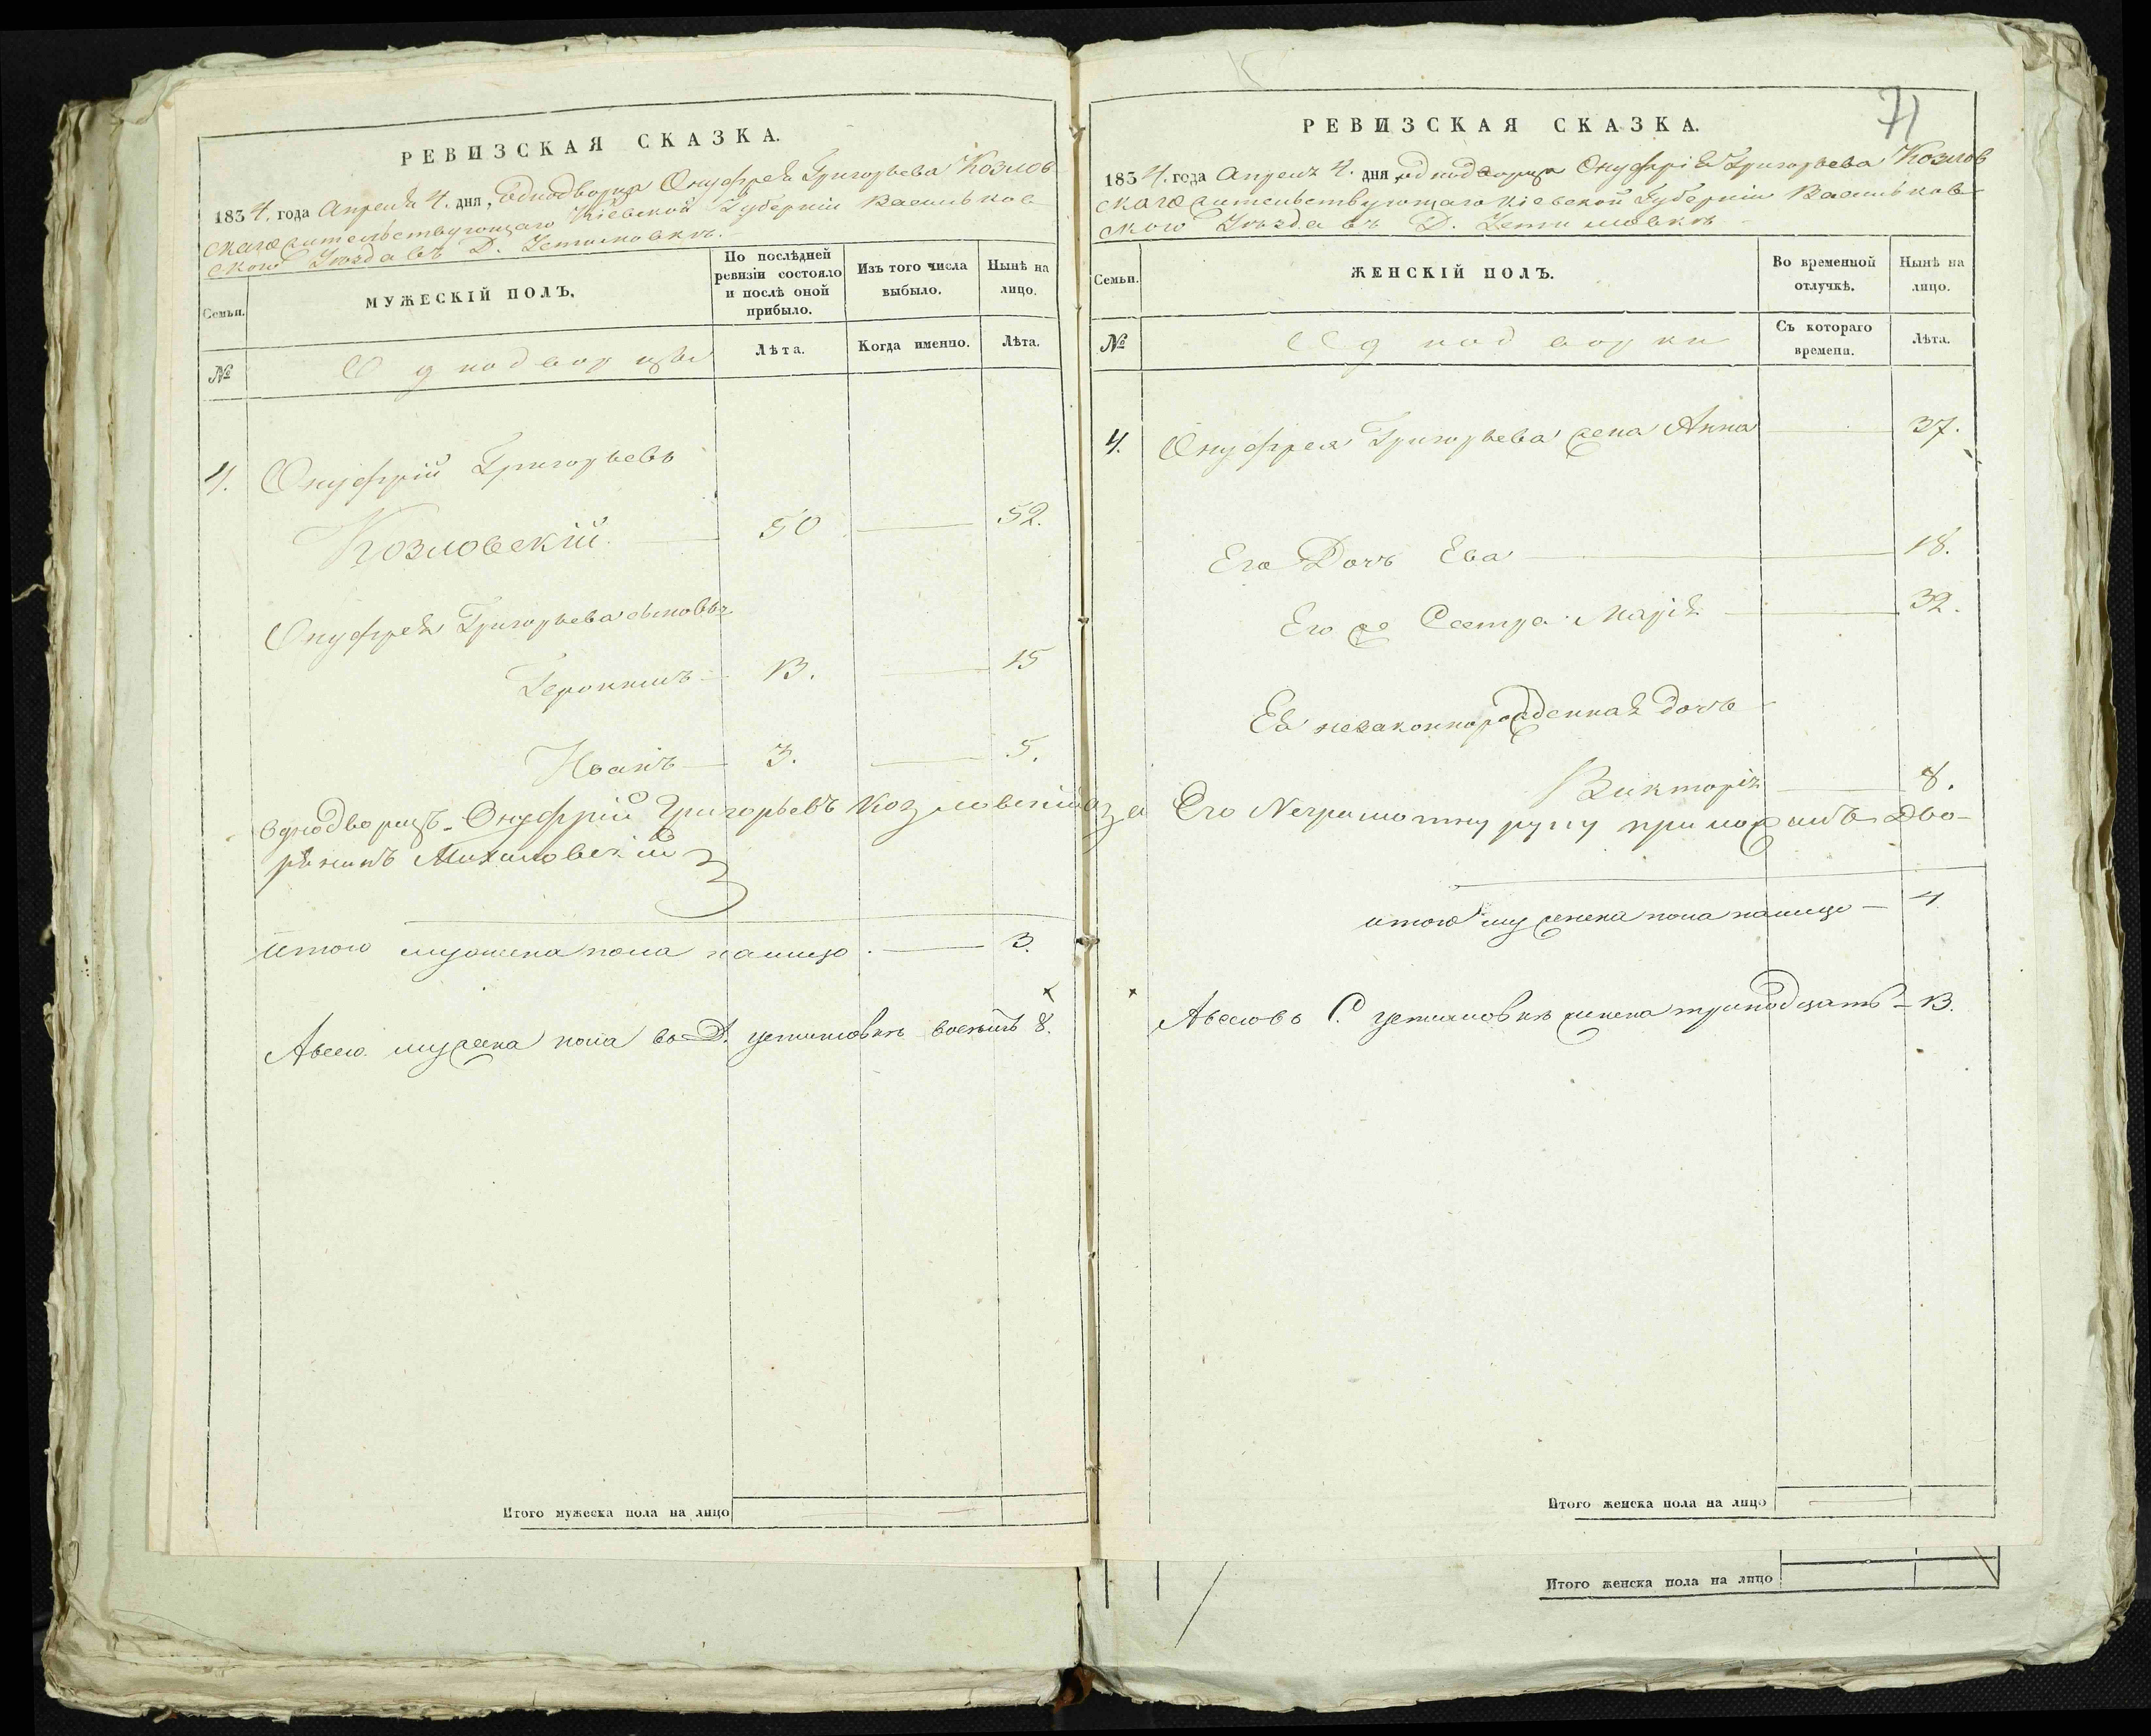 РЕВИЗСКАЯ СКАЗКА.
1834. года Апреля 4. дня, Однодворца Онуфрея Григорьева Козлов
скаго жительствующаго Кіевской Губерніи Васильков
скаго Уѣзда въ Д. Устимовкѣ.
Семьи.
МУЖЕСКІЙ ПОЛЪ.
По послѣдней
ревизіи состояло
и послѣ оной
прибыло.
Изъ того числа
выбыло.
Нынѣ на
лицо.
№
Однодворцы
Лѣта.
Когда именно.
Лѣта.
4. Онуфрій Григорьевъ
Козловскій — 50 — 52.
Онуфрея Григорьева сыновья
Геронимъ — 13. — 15
Иванъ — 3. — 5.
Однодворецъ Онуфрій Григорьевъ Козловскій а за
рянинъ Михаловскій
итого мужеска пола налицо. — 3.
Авсего мужеска пола во Д. устимовкѣ восемъ 8.
Итого мужеска пола на лицо
71
РЕВИЗСКАЯ СКАЗКА.
1834. года Апреля 4. дня, однодворца Онуфрія Григорьева Козлов
скаго жительствующаго Кіевской Губерніи Васильков
скаго Уѣзда въ Д. Устимовкѣ
Семьи.
ЖЕНСКІЙ ПОЛЪ.
Во временной
отлучкѣ.
Нынѣ на
лицо.
№
Однодворки
Съ котораго
времени.
Лѣта.
4. Онуфрея Григорьева жена Анна — 37.
Его Дочь Ева — 18.
Его же Сестра Марія — 32.
Ея незаконнорожденная дочь
Викторія — 8.
Его Неграмотну руку приложилъ Дво-
итого женска пола налицо — 4
Авсего въ С. устимовкѣ женска тринадцать — 13.
Итого женска пола на лицо
Итого женска пола на лицо